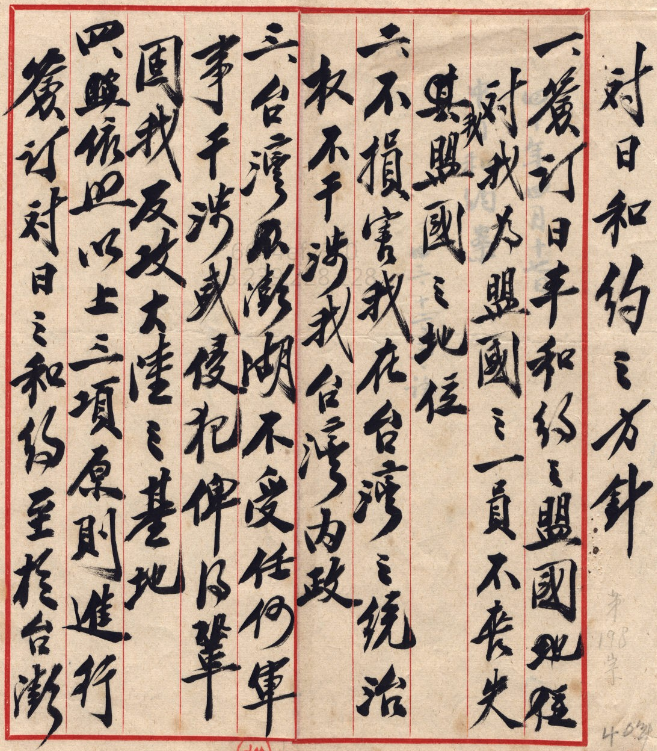 対日和約之方針
一、簽訂日本和約之盟國地位
対我為盟國之一員不喪失
其我盟國之地位
二、不損害我在台灣之統治
权不干涉我台灣內政
三、台灣及澎湖不受任何軍
事干涉或侵犯俾得鞏
固我反攻大陸之基地
四、依照以上三項原則進行
簽訂対日之和約至於台澎